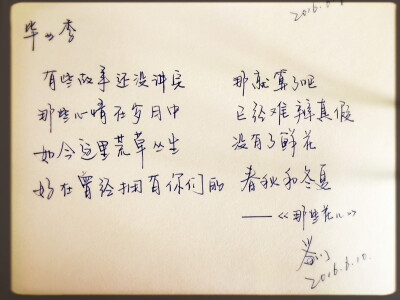 毕业季
有些故事还没讲完 那就算了吧
那些心情在岁月中 已经难辨真假
如今这里荒草丛生 没有了鲜花
好在曾经拥有你们的 春秋和冬夏
——《那些花儿》
2016.6.10.